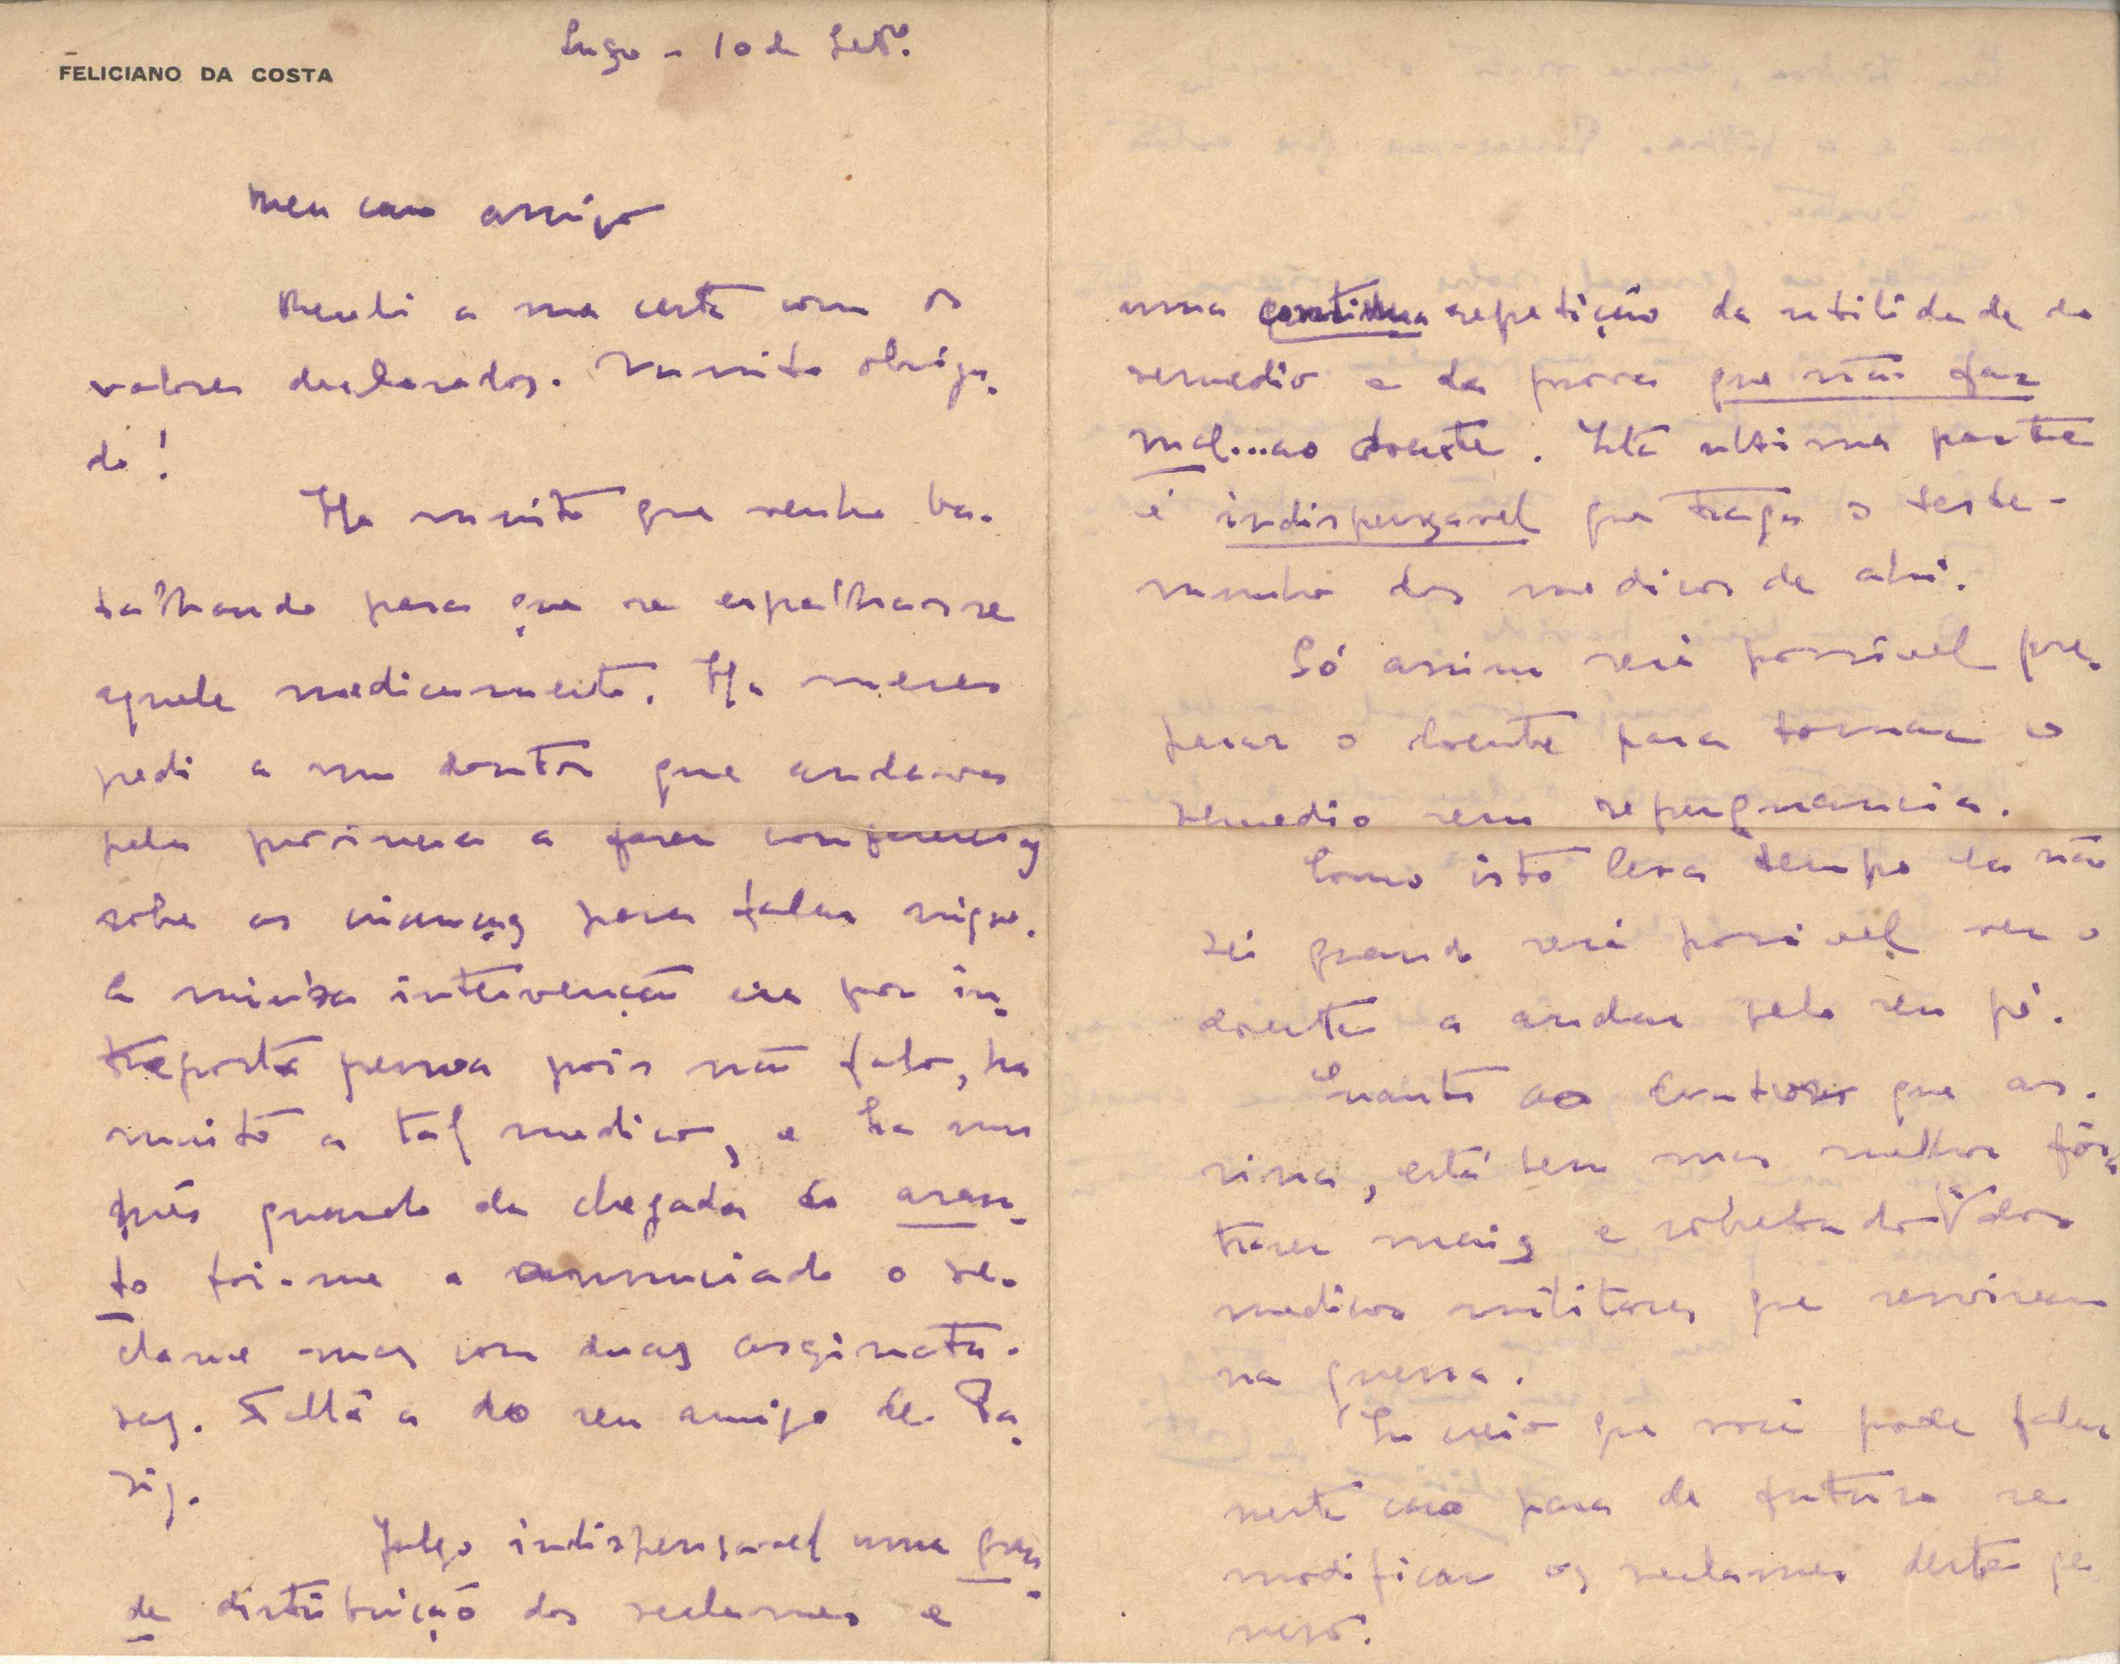 FELICIANO DA COSTA
Luzo - 10 de Setº.
Meu caro amigo
Recebi a sua carta com os
valores declarados. Muito obriga-
do!
Ha muito que venho ba-
talhando para que se espalhasse
aquele medicamento. Ha mezes
pedi a um doutor que andava
pela provincia a fazer conferencias
sobre as crianças para falar nisso.
A minha intervenção era por in-
treposta pessoa pois não falo, ha
muito a tal medico, e ha um
mês quando da chegada do aran-
to foi-me anunciado o re-
clame mas com duas assignatu-
ras. Faltá a do seu amigo de Pa-
ris.
Julgo indispensavel uma gran-
de distribuição dos reclames e
uma continua repetição da utilidade do
remedio e da prova que não faz
mal...ao doente. Esta ultima parte
é indispensavel que traga o teste-
munho dos medicos de ahi.
Só assim será possivel pre-
parar o doente para tomar o
remedio sem repugnancia.
Como isto leva tempo eu não
sei quando será possivel ver o
doente a andar pelo seu pé.
Quanto ao doutor que as-
sina, está bem mas melhor fôra
trazer mais e sobretudo dos
medicos militares que serviram
na guerra.
Eu creio que você pode falar
neste caso para de futuro se
modificar os reclames deste ge
nero.